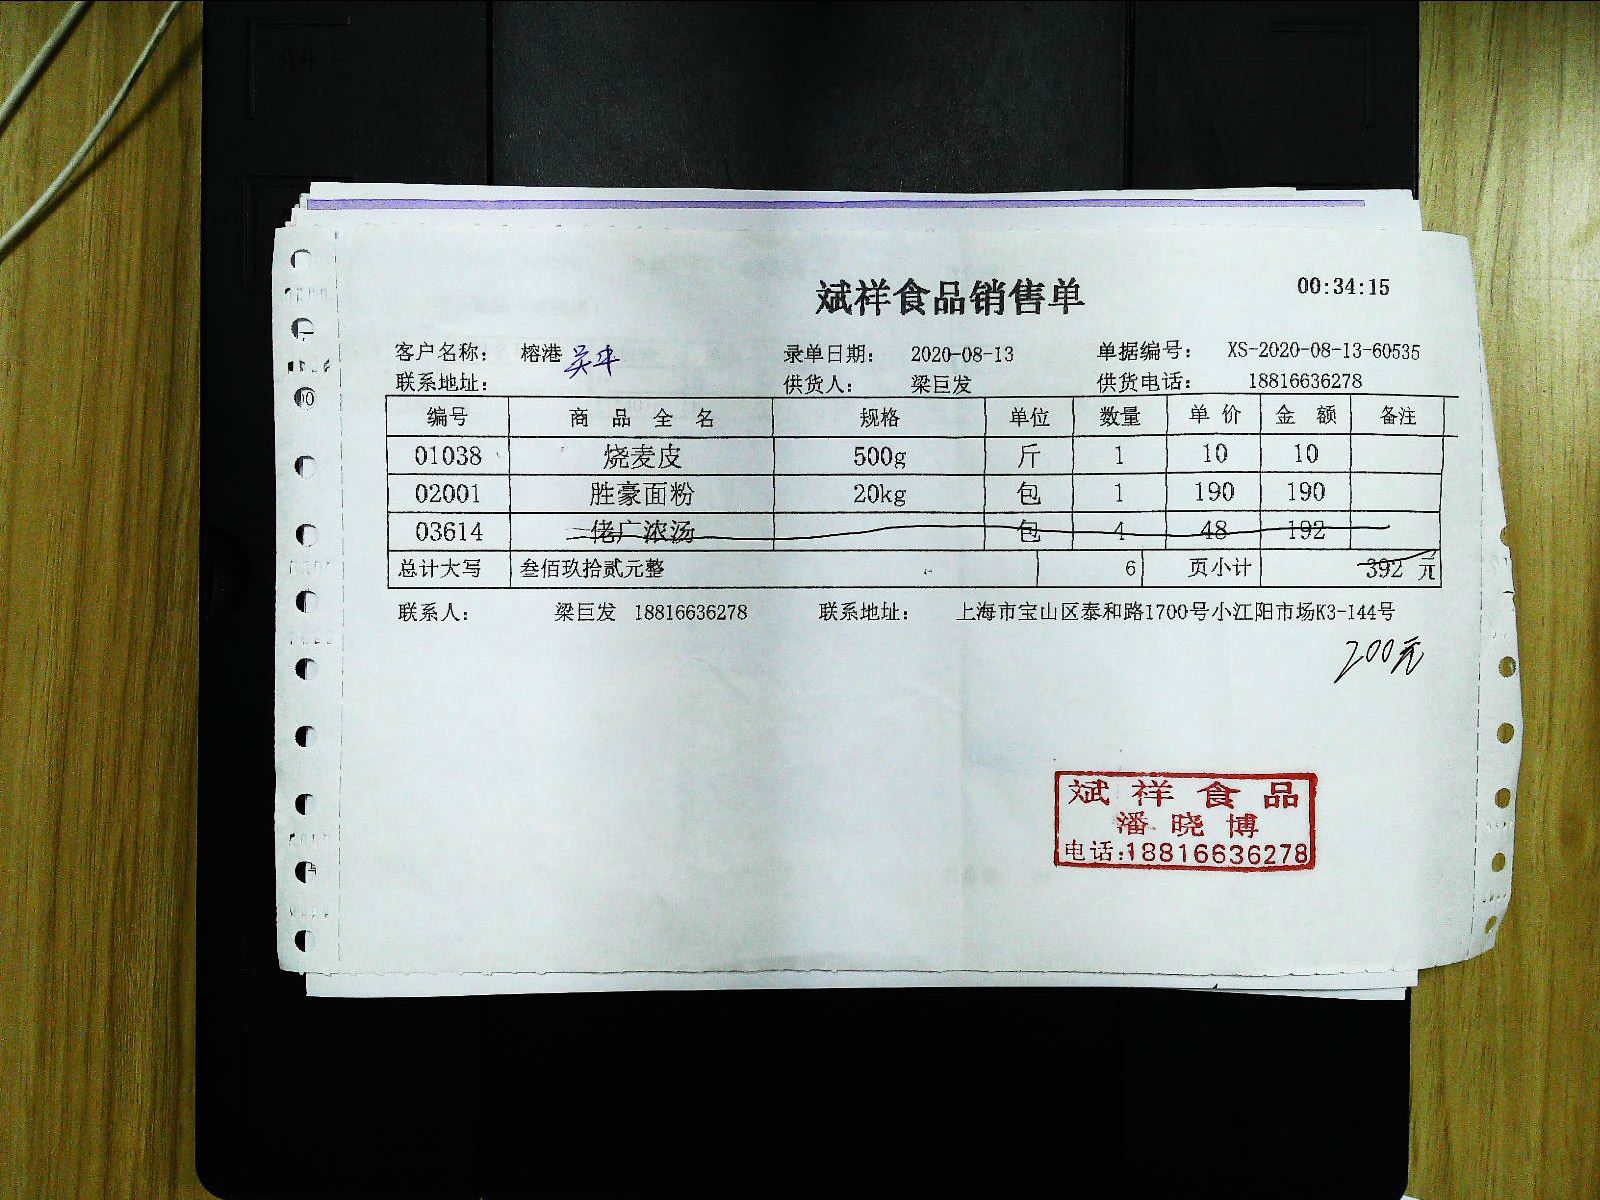 斌祥食品销售单 00:34:15
客户名称： 榕港 吴牛 录单日期： 2020-08-13 单据编号： XS-2020-08-13-60535
联系地址： 供货人： 梁巨发 供货电话： 18816636278
编号 商品全名 规格 单位 数量 单价 金额 备注
01038 烧麦皮 500g 斤 1 10 10
02001 胜豪面粉 20kg 包 1 190 190
03614 佬广浓汤 包 4 48 192
总计大写 叁佰玖拾贰元整 6 页小计 392 元
联系人： 梁巨发 18816636278 联系地址： 上海市宝山区泰和路1700号小江阳市场K3-144号
200元
斌祥食品
潘晓博
电话:18816636278